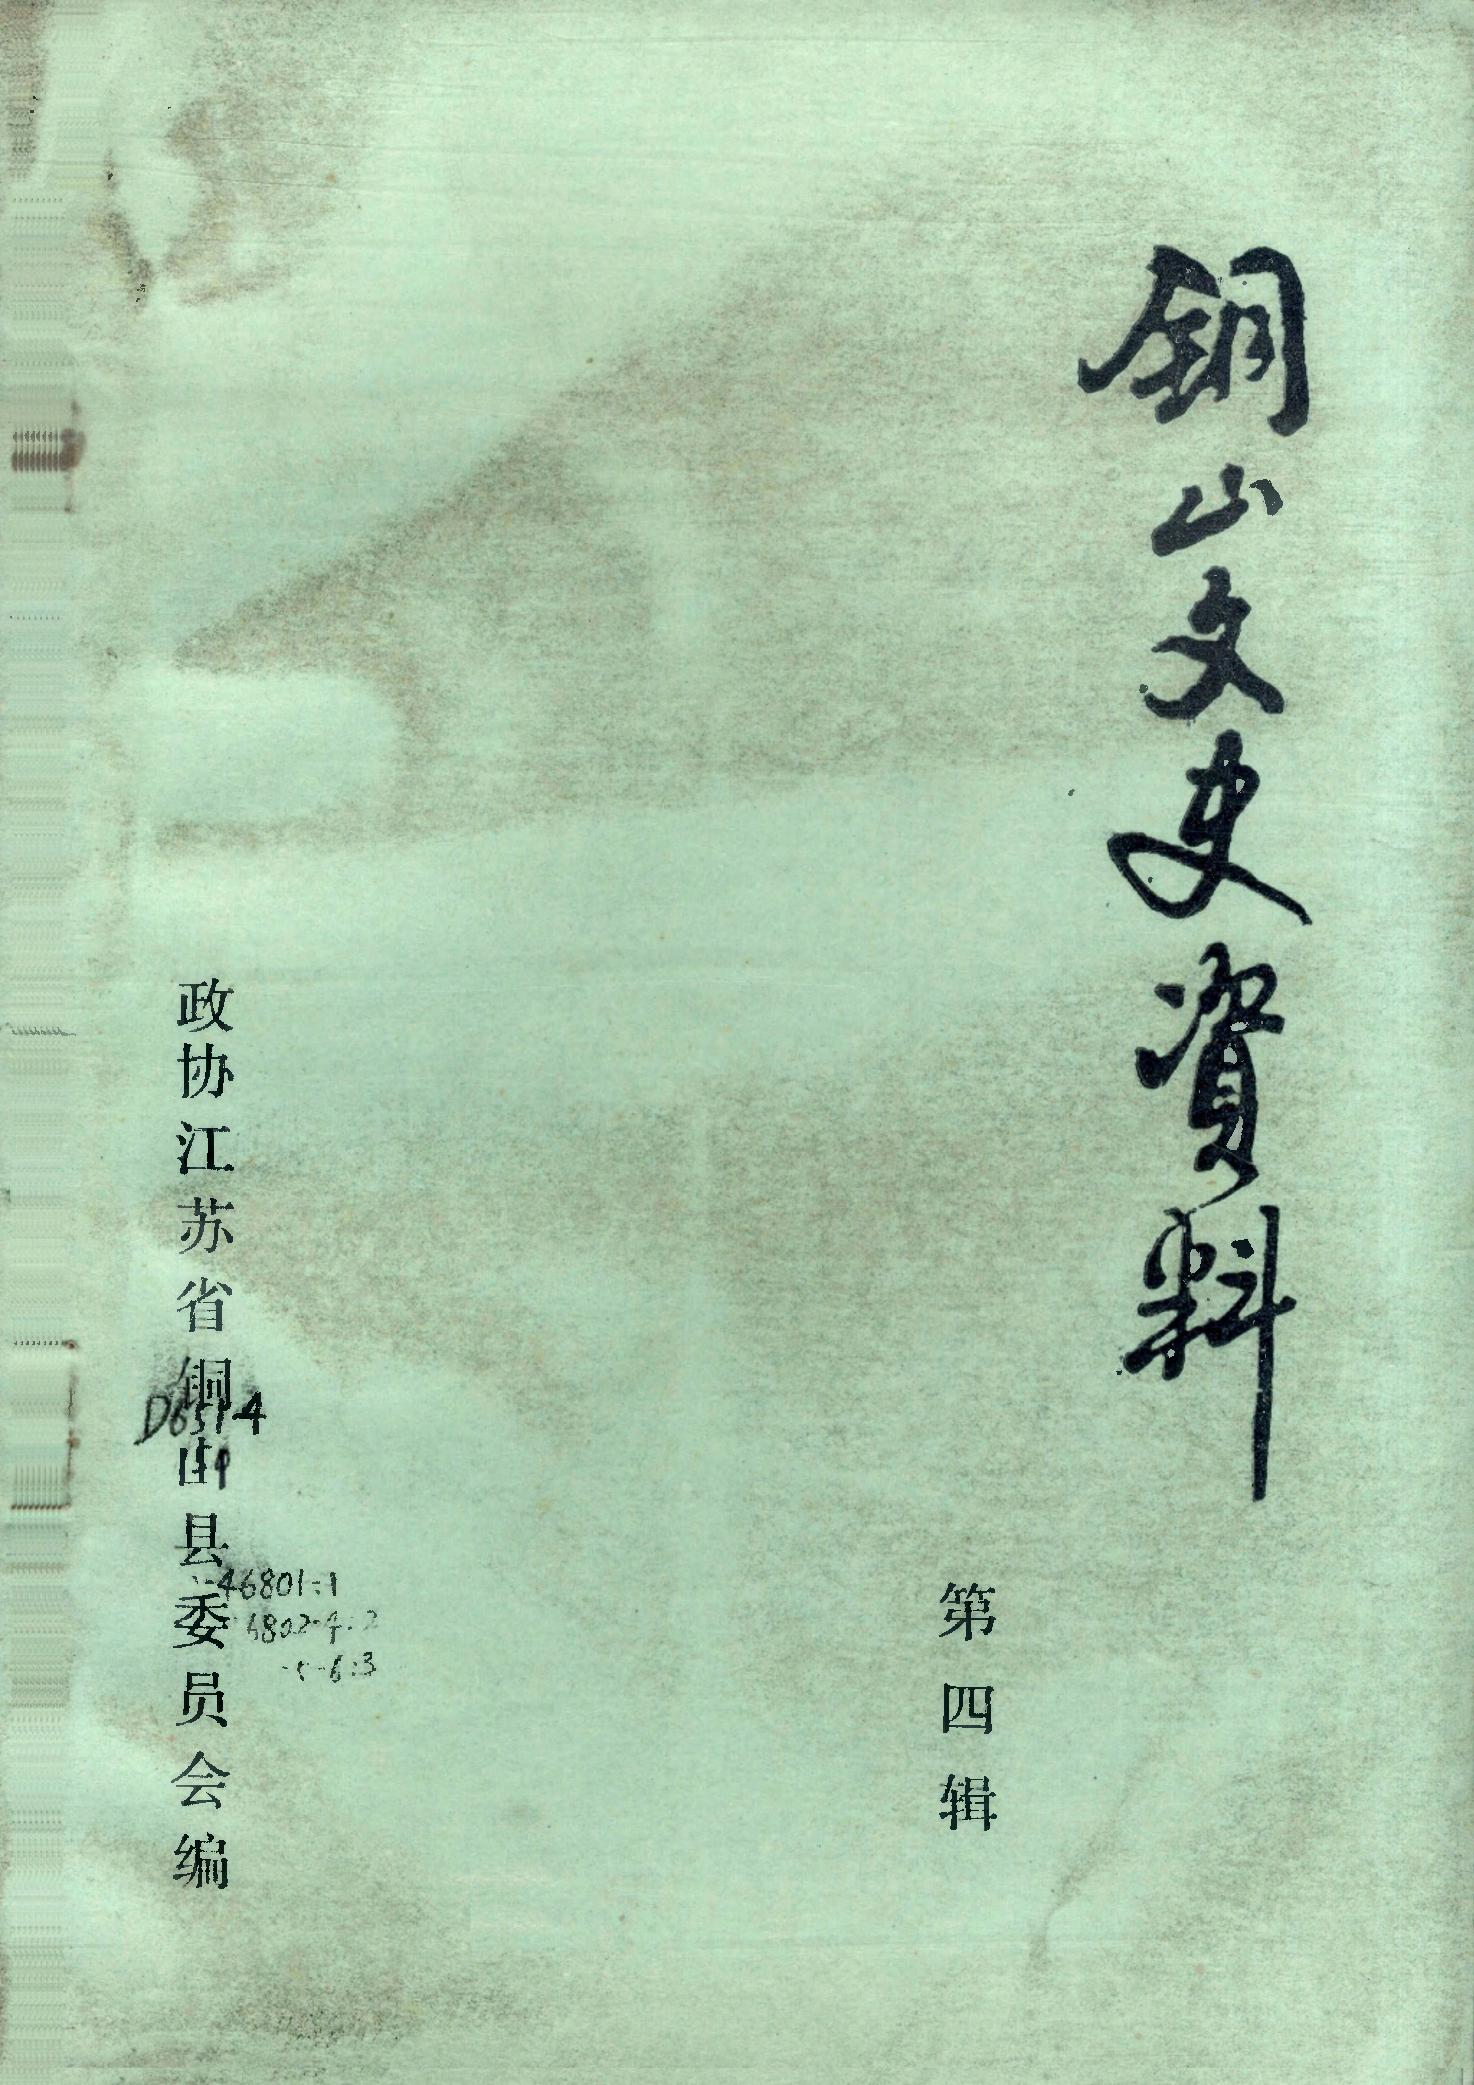 銅山文史資料
第四辑
政协江苏省铜山县委员会编
46801:1
6802-4:2
-5-6:3